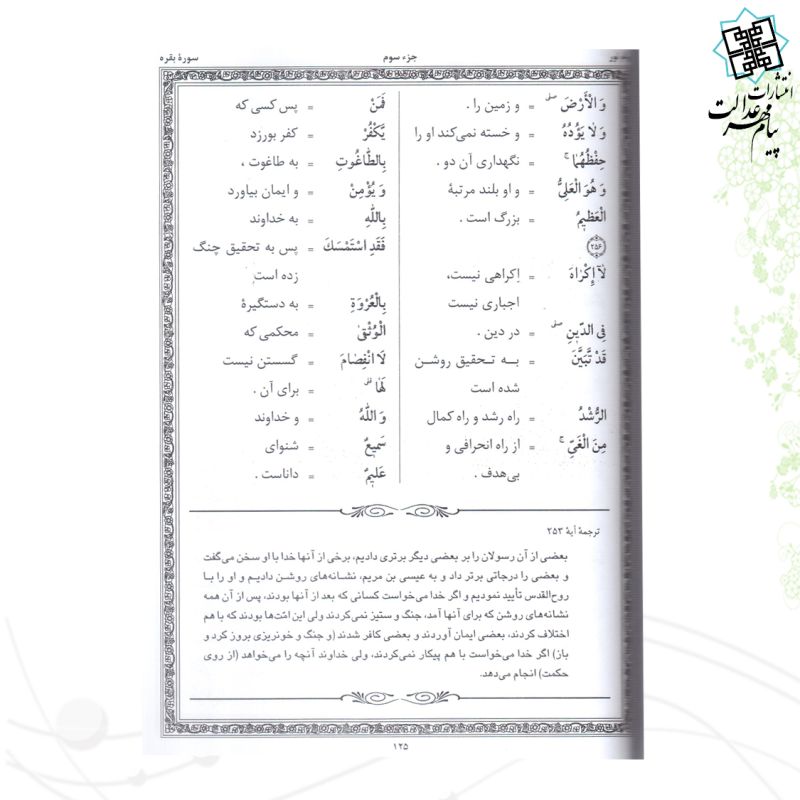 انتشارات
پیام مهر عدالت
جزء سوم
سورهٔ بقره
وَ الْأَرْضَ ۖ = و زمین را .
وَ لَا یَؤُدُهُ = و خسته نمی‌کند او را
حِفْظُهُمَا ۚ = نگهداری آن دو .
وَ هُوَ الْعَلِیُّ = و او بلند مرتبهٔ
الْعَظِیمُ = بزرگ است .
﴿۲۵۶﴾
لَآ إِکْرَاهَ = اِکراهی نیست،
اجباری نیست
فِی الدِّینِ ۖ = در دین .
قَدْ تَّبَیَّنَ = به تحقیق روشن
شده است
الرُّشْدُ = راه رشد و راه کمال
مِنَ الْغَیِّ ۚ = از راه انحرافی و
بی‌هدف .
فَمَنْ = پس کسی که
یَّکْفُرْ = کفر بورزد
بِالطَّاغُوتِ = به طاغوت ،
وَ یُؤْمِنْ = و ایمان بیاورد
بِاللَّهِ = به خداوند
فَقَدِ اسْتَمْسَكَ = پس به تحقیق چنگ
زده است
بِالْعُرْوَةِ = به دستگیرهٔ
الْوُثْقیٰ = محکمی که
لَا انْفِصَامَ = گسستن نیست
لَهَا ۗ = برای آن .
وَ اللَّهُ = و خداوند
سَمِیعٌ = شنوای
عَلِیمٌ = داناست .
ترجمهٔ آیهٔ ۲۵۳
بعضی از آن رسولان را بر بعضی دیگر برتری دادیم، برخی از آنها خدا با او سخن می‌گفت
و بعضی را درجاتی برتر داد و به عیسی بن مریم، نشانه‌های روشن دادیم و او را با
روح‌القدس تأیید نمودیم و اگر خدا می‌خواست کسانی که بعد از آنها بودند، پس از آن همه
نشانه‌های روشن که برای آنها آمد، جنگ و ستیز نمی‌کردند ولی این امّت‌ها بودند که با هم
اختلاف کردند، بعضی ایمان آوردند و بعضی کافر شدند (و جنگ و خونریزی بروز کرد و
باز) اگر خدا می‌خواست با هم پیکار نمی‌کردند، ولی خداوند آنچه را می‌خواهد (از روی
حکمت) انجام می‌دهد.
۱۲۵